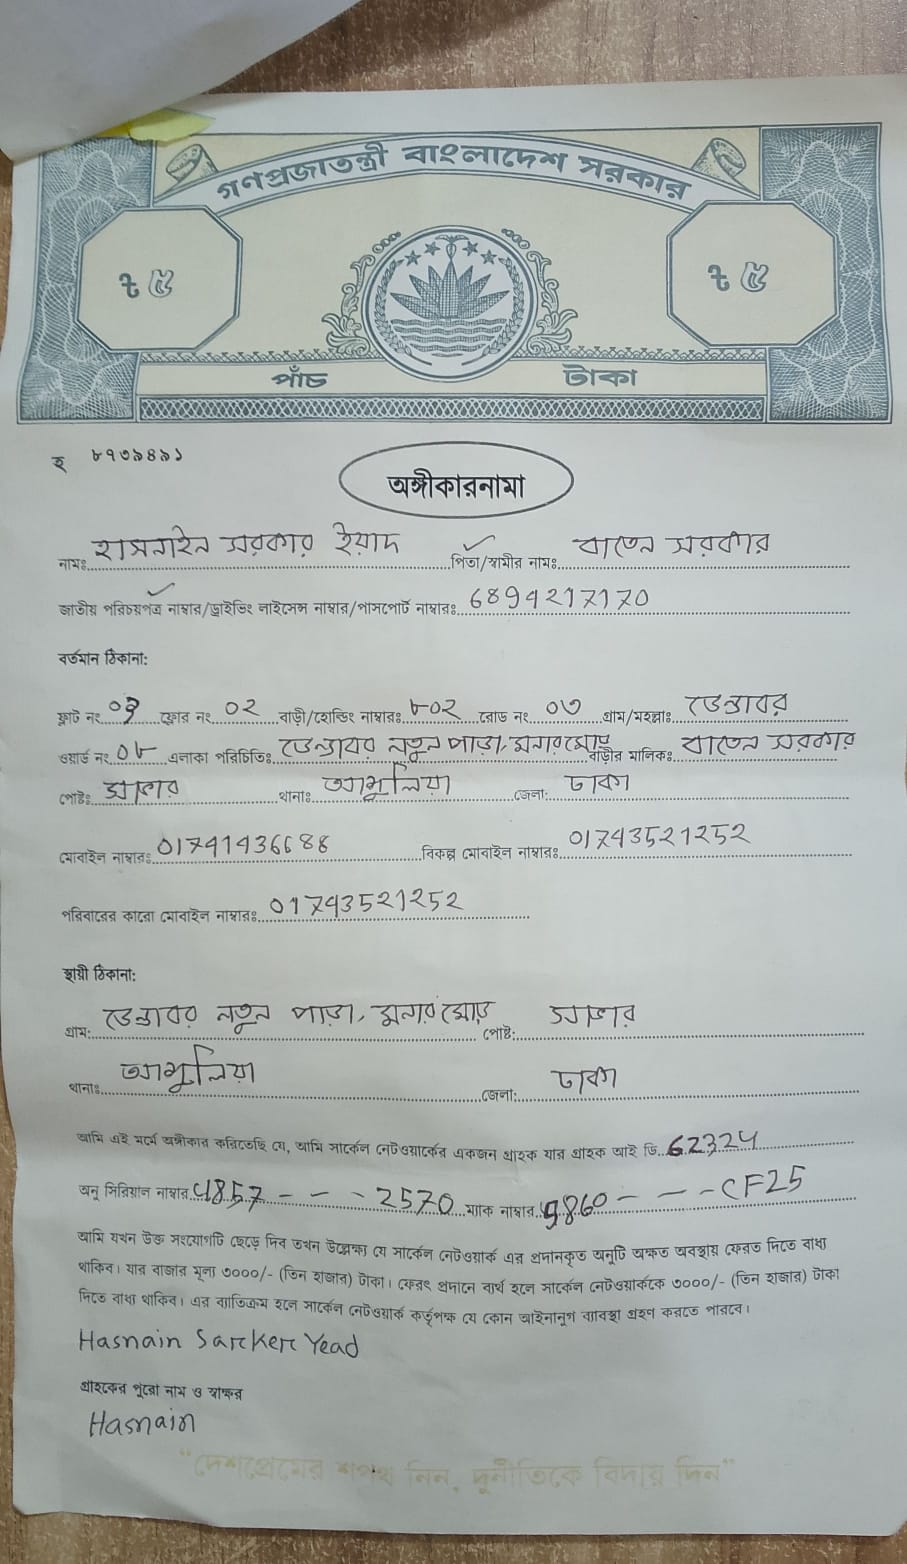 গণপ্রজাতন্ত্রী বাংলাদেশ সরকার
৳ ৫ ৳ ৫
পাঁচ টাকা
হ ৮৭৩৯৪৯১
অঙ্গীকারনামা
নামঃ হাসনাইন সরকার ইয়াদ পিতা/স্বামীর নামঃ বাতেন সরকার
জাতীয় পরিচয়পত্র নাম্বার/ড্রাইভিং লাইসেন্স নাম্বার/পাসপোর্ট নাম্বারঃ 6894217170
বর্তমান ঠিকানা:
ফ্ল্যাট নং ফ্লোর নং ০২ বাড়ী/হোল্ডিং নাম্বারঃ ৮০২ রোড নং ০৩ গ্রাম/মহল্লাঃ ডেন্ডাবর
ওয়ার্ড নং ০৮ এলাকা পরিচিতিঃ ডেন্ডাবর নতুন পাড়া, মনার মোড় বাড়ীর মালিকঃ বাতেন সরকার
পোষ্টঃ সাভার থানাঃ আশুলিয়া জেলা: ঢাকা
মোবাইল নাম্বারঃ বিকল্প মোবাইল নাম্বারঃ 01743521252
পরিবারের কারো মোবাইল নাম্বারঃ 01743521252
স্থায়ী ঠিকানা:
গ্রাম: ডেন্ডাবর নতুন পাড়া, মনার মোড় পোষ্ট: সাভার
থানাঃ আশুলিয়া জেলা: ঢাকা
আমি এই মর্মে অঙ্গীকার করিতেছি যে, আমি সার্কেল নেটওয়ার্কের একজন গ্রাহক যার গ্রাহক আই ডি 62324
অনু সিরিয়াল নাম্বার 4857 - - - 2570 ম্যাক নাম্বার 9860 - - - CF25
আমি যখন উক্ত সংযোগটি ছেড়ে দিব তখন উল্লেক্ষ্য যে সার্কেল নেটওয়ার্ক এর প্রদানকৃত অনুটি অক্ষত অবস্থায় ফেরত দিতে বাধ্য
থাকিব। যার বাজার মূল্য ৩০০০/- (তিন হাজার) টাকা। ফেরৎ প্রদানে ব্যর্থ হলে সার্কেল নেটওয়ার্ককে ৩০০০/- (তিন হাজার) টাকা
দিতে বাধ্য থাকিব। এর ব্যতিক্রম হলে সার্কেল নেটওয়ার্ক কর্তৃপক্ষ যে কোন আইনানুগ ব্যবস্থা গ্রহণ করতে পারবে।
Hasnain Sarker Yead
গ্রাহকের পুরো নাম ও স্বাক্ষর
Hasnain
"দেশপ্রেমের শপথ নিন, দুর্নীতিকে বিদায় দিন"